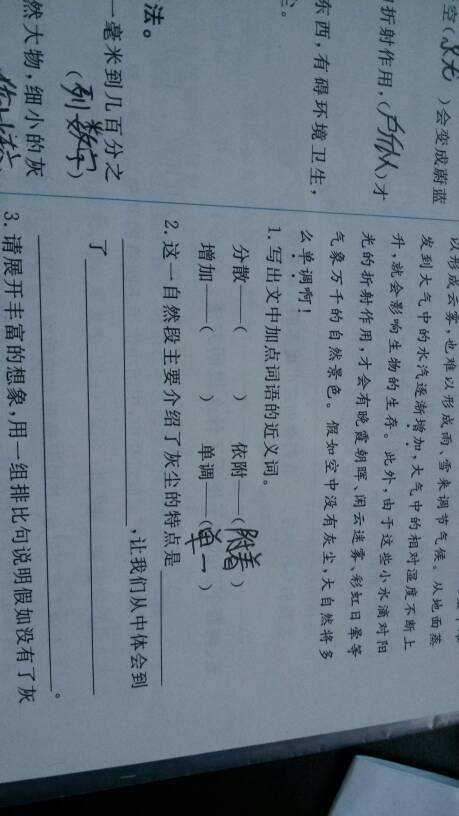 空( )会变成蔚蓝
折射作用，(所以)才
东西，有碍环境卫生，
法。
一毫米到几百分之
(列数字)
然大物，细小的灰
以形成云雾，也难以形成雨、雪来调节气候。从地面蒸
发到大气中的水汽逐渐增加，大气中的相对湿度不断上
升，就会影响生物的生存。此外，由于这些小水滴对阳
光的折射作用，才会有晚霞朝晖、闲云迷雾、彩虹日晕等
气象万千的自然景色。假如空中没有灰尘，大自然将多
么单调啊！
1. 写出文中加点词语的近义词。
分散——( ) 依附——(附着)
增加——( ) 单调——(单一)
2. 这一自然段主要介绍了灰尘的特点是
，让我们从中体会到
了
。
3. 请展开丰富的想象，用一组排比句说明假如没有了灰